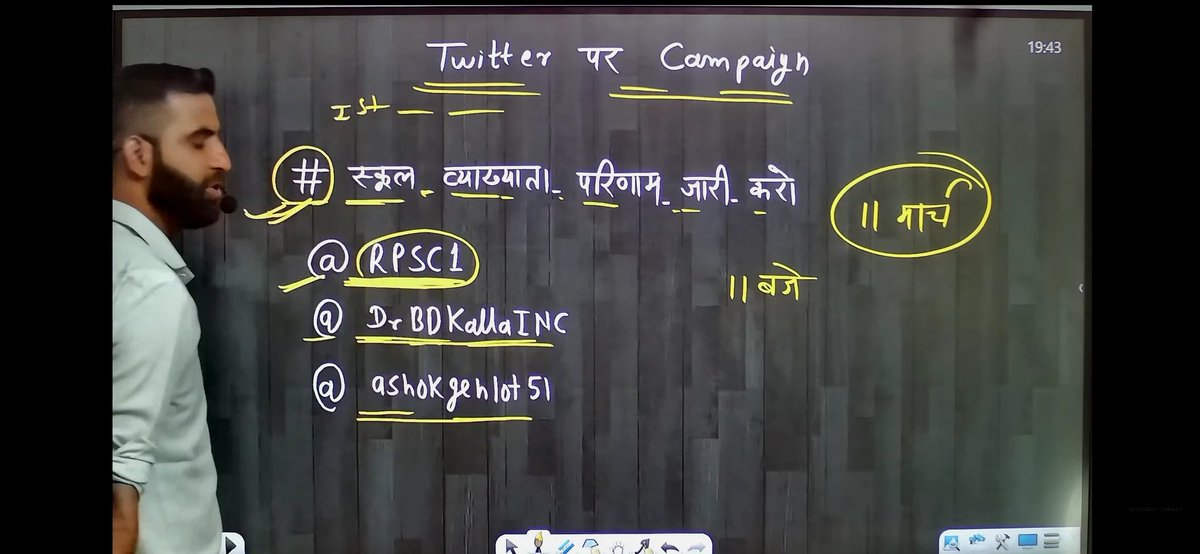 Twitter पर Campaign
19:43
Ist
# स्कूल_व्याख्याता_परिणाम_जारी_करो
11 मार्च
@ RPSC1
11 बजे
@ DrBDKallaINC
@ ashokgehlot51